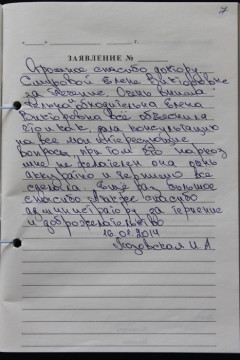 7
ЗАЯВЛЕНИЕ №
Огромное спасибо доктору
Смуровой Елене Викторовне
за лечение. Очень внима-
тельна, обходительна Елена
Викторовна всё объяснила
что и как, дала консультацию
на все мои интересующие
вопросы, при том что наркоз
мне не желателен она очень
аккуратно и терпимо всё
сделала. Ещё раз большое
спасибо. Также спасибо
администратору за терпение
и доброжелательство
16.02.2014
И.А.